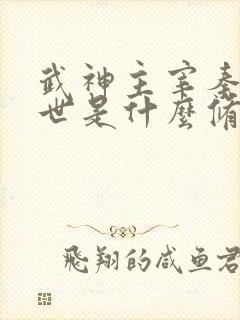 武神主宰秦
世是什麼脩
飛翔的咸鱼君